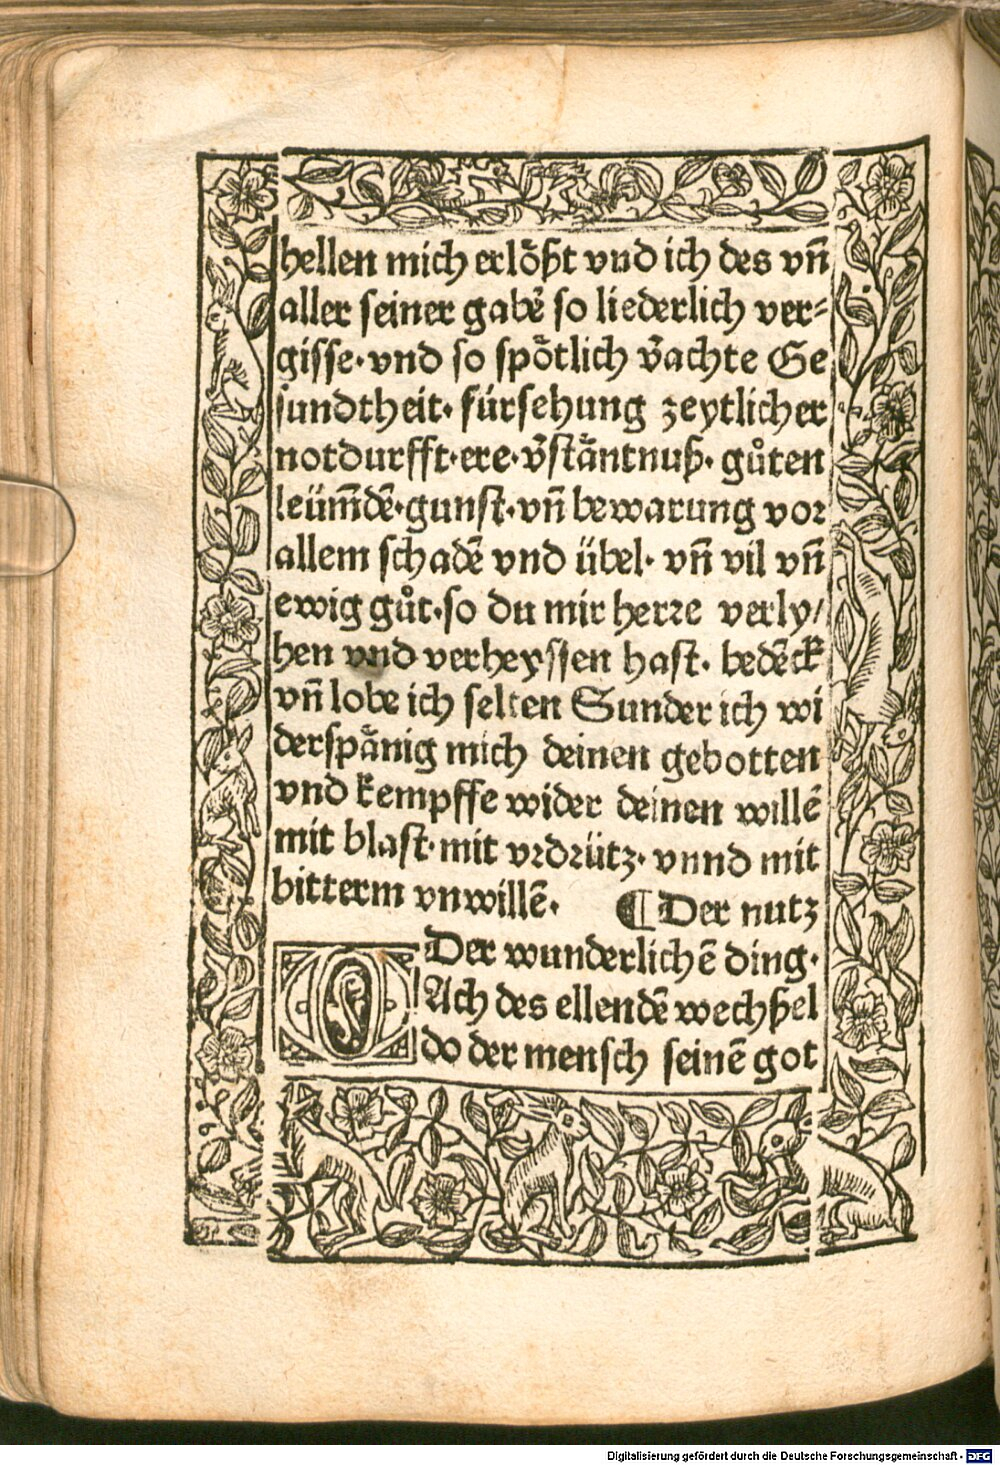 hellen mich erlo̊ßt vnd ich des vn̄
aller seiner gabē so liederlich ver⸗
gisse·vnd so spo̊tlich v̄achte Ge
sundtheit· fürsehung zeytlicher
notdurfft·ere·v̄stȧntnuß· gůten
leüm̄dē·gunst·vn̄ bewarung vor
allem schadē vnd übel· vn̄ vil vn̄
ewig gůt·so du mir herre verly/
hen vnd verheyssen hast· bedēck
vn̄ lobe ich selten Sunder ich wi
derspȧnig mich deinen gebotten
vnd kempffe wider deinen willē
mit blast·mit vrdrütz·vnnd mit
bitterm vnwillē· ¶ Der nutz
Der wunderlichē ding·
O Ach des ellendē wechßel
do der mensch seinē got
Digitalisierung gefördert durch die Deutsche Forschungsgemeinschaft - DFG